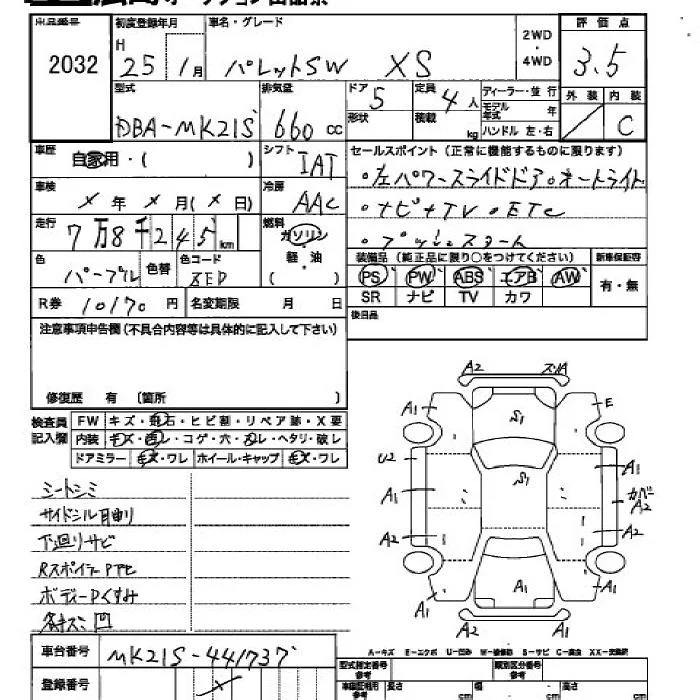 出品番号 初度登録年月 車名・グレード 2WD・4WD 評価点
2032 H 25年 1月 パレットSW XS 3.5
型式 排気量 ドア 5 定員 4人 ディーラー・並行 外装 内装
DBA-MK21S 660cc 形状 積載 kg モデル年式 年 C
ハンドル 左・右
車歴 自家用・( ) シフト IAT セールスポイント(正常に機能するものに限ります)
車検 ×年×月(×日) 冷房 AAC ・左パワースライドドア・オートライト
走行 7万8千245km 燃料 ガソリン ・ナビ+TV・ETC
軽・油 ( ) ・プッシュスタート
色 パープル 色替 色コード ZED 装備品(純正品に限り○をつけてください) 新車保証書
PS PW ABS エアB AW 有・無
R券 10170円 名変期限 月 日 SR ナビ TV カワ
注意事項申告欄(不具合内容等は具体的に記入して下さい) 後日品
修復歴 有 〔箇所 〕
検査員記入欄 FW キズ・飛石・ヒビ割・リペア跡・X要
内装 キズ・汚レ・コゲ・穴・スレ・ヘタリ・破レ
ドアミラー キズ・ワレ ホイール・キャップ キズ・ワレ
シートシミ
サイドシル曲り
下廻りサビ
RスポイラーPヤセ
ボディーPくすみ
各キズ凹
A2 スリA
A1 S1 E
U2 S1 A1
A1 カバーA2
A2 A2
A1 A1 A1
A2 A2
A-キズ E-エクボ U-凹み W-補修跡 S-サビ C-腐食 XX-交換済
車台番号 MK21S-441737
登録番号 × 型式指定番号 参考 類別区分番号 参考
車庫証明用 参考 長さ cm 幅 cm 高さ cm